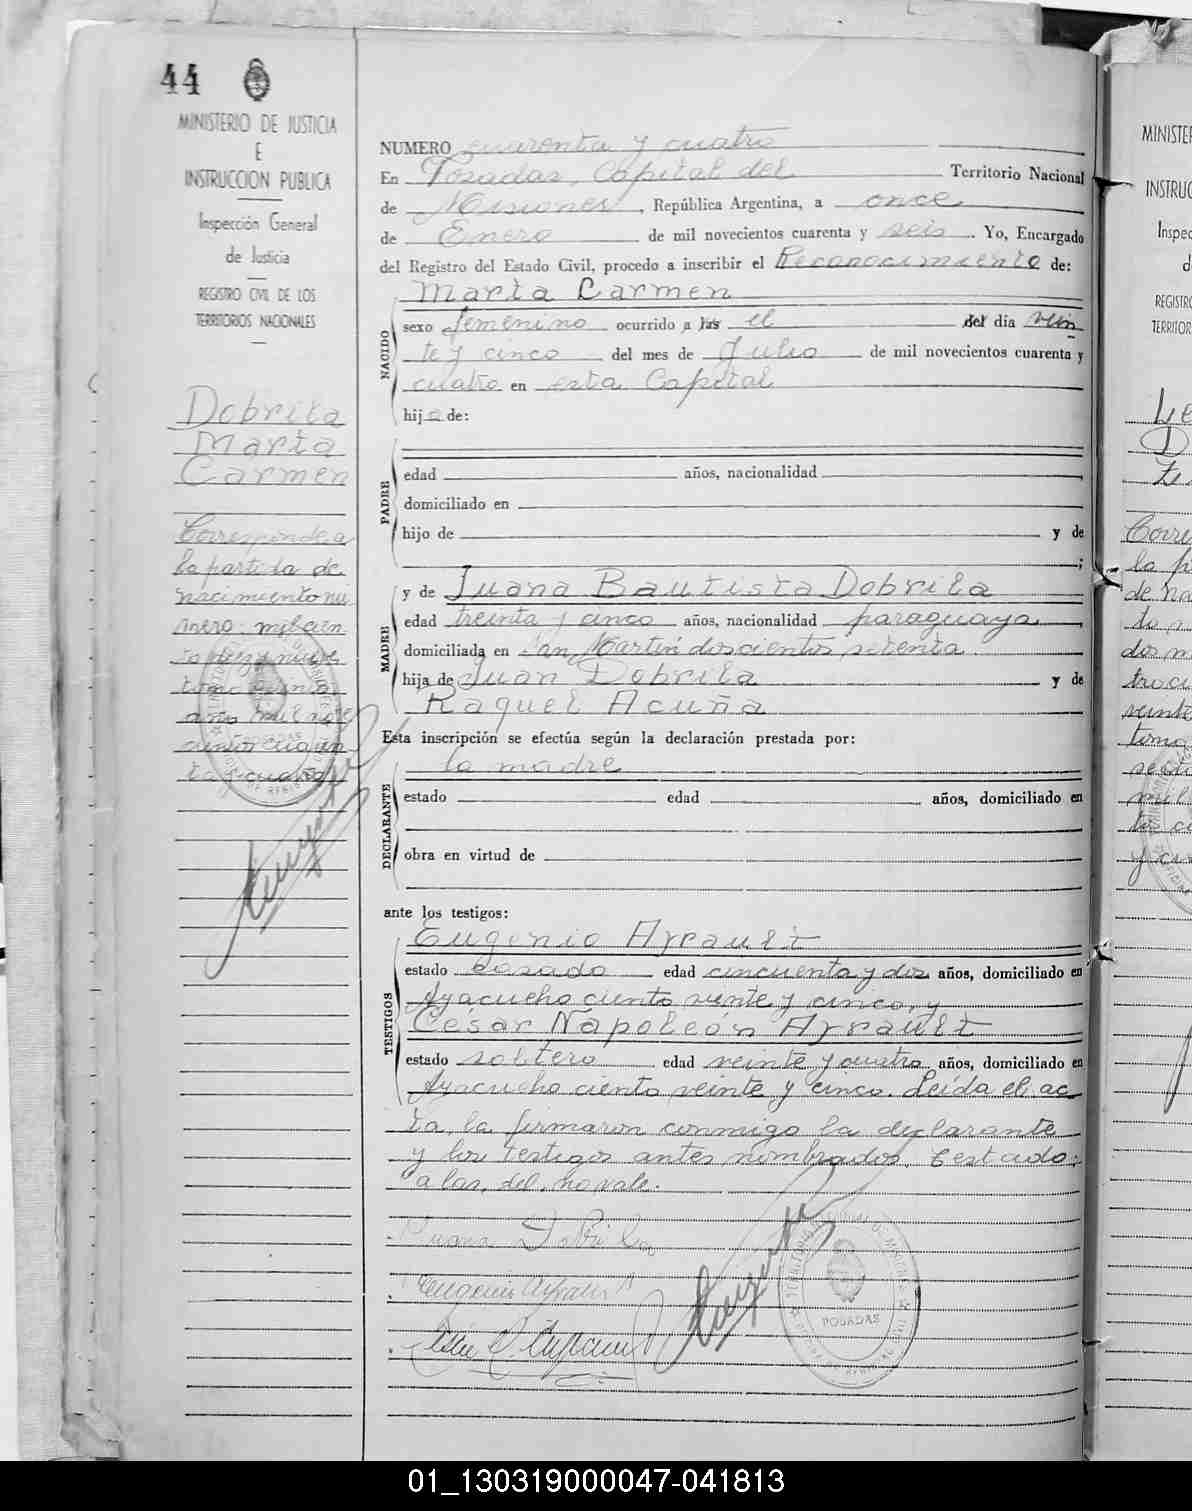 44
MINISTERIO DE JUSTICIA
E
INSTRUCCION PUBLICA
Inspección General
de Justicia
REGISTRO CIVIL DE LOS
TERRITORIOS NACIONALES
Dobrila
Marta
Carmen
Corresponde a
la partida de
nacimiento nu
mero: mil cien
to diez y nueve
tomo
años mil nove
cientos cuaren
ta y cuatro
NUMERO cuarenta y cuatro
En Posadas, Capital del Territorio Nacional
de Misiones, República Argentina, a once
de Enero de mil novecientos cuarenta y seis. Yo, Encargado
del Registro del Estado Civil, procedo a inscribir el Reconocimiento de:
NACIDO
Marta Carmen
sexo femenino ocurrido a las el del día vein
te y cinco del mes de Julio de mil novecientos cuarenta y
cuatro en esta Capital
hija de:
PADRE
edad años, nacionalidad
domiciliado en
hijo de y de
;
MADRE
y de Juana Bautista Dobrila
edad treinta y cinco años, nacionalidad paraguaya,
domiciliada en San Martín doscientos setenta
hija de Juan Dobrila y de
Raquel Acuña
Esta inscripción se efectúa según la declaración prestada por:
DECLARANTE
la madre
estado edad años, domiciliado en
obra en virtud de
ante los testigos:
TESTIGOS
Eugenio Ayrault
estado casado edad cincuenta y dos años, domiciliado en
Ayacucho ciento veinte y cinco, y
César Napoleón Ayrault
estado soltero edad veinte y cuatro años, domiciliado en
Ayacucho ciento veinte y cinco. Leída el ac
ta, la firmaron conmigo la declarante
y los testigos antes nombrados. Testado:
a las, del, no vale.
Juana Dobrila
Eugenio Ayrault
POSADAS
MINISTER
INSTRUC
Inspec
d
REGISTRO
TERRITOR
01_130319000047-041813